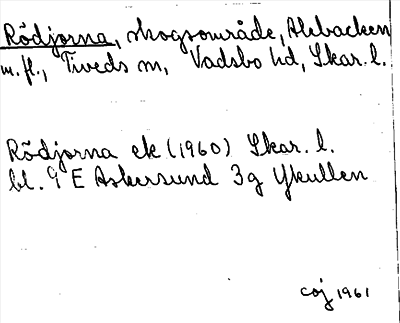 Rödjorna, skogsområde, Alebacken
m.fl., Tiveds sn, Vadsbo hd, Skar. l.
Rödjorna ek (1960) Skar. l.
bl. 9 E Askersund 3g Ykullen
coj 1961